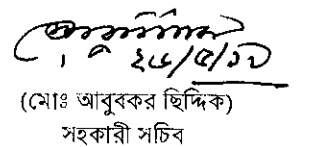 ২৫/৫/১১
(মোঃ আবুবকর ছিদ্দিক)
সহকারী সচিব